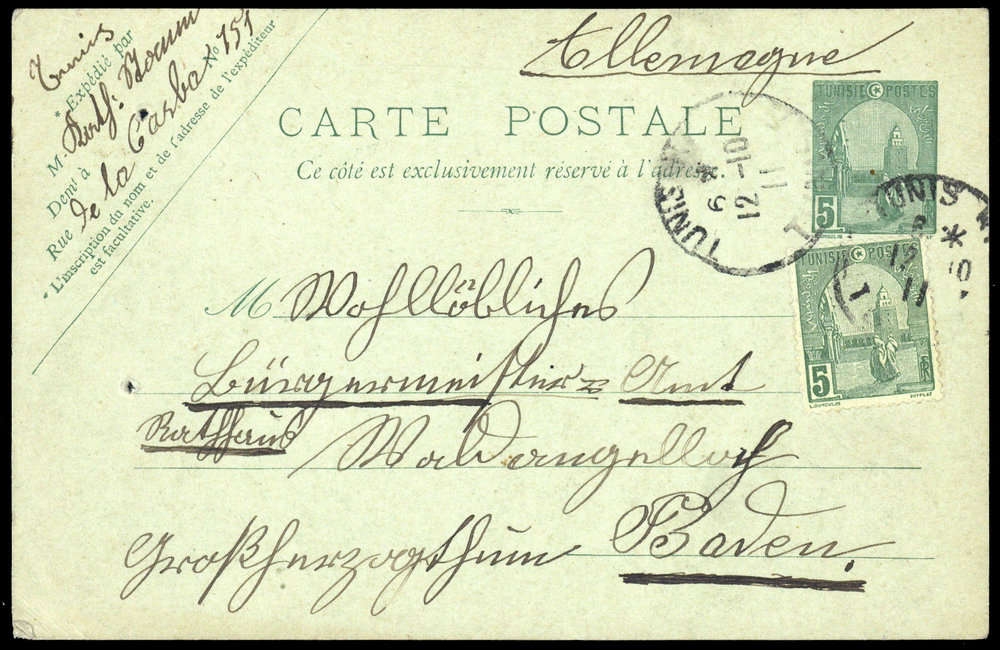 Tunis
* Expédié par
M. Berth:
Dem^t à
Rue de la Casba N^o 151
* L'inscription du nom et de l'adresse de l'expéditeur
est facultative.
Allemagne
CARTE POSTALE
Ce côté est exclusivement réservé à l'adresse.
TUNISIE POSTES
5
TUNIS
6
12-10
11
TUNIS
* 
12 10
11
TUNISIE POSTES
5
RF
M Wohllöbliches
Bürgermeister= Amt
Rathhaus
Waldangelloch
Großherzogthum Baden.